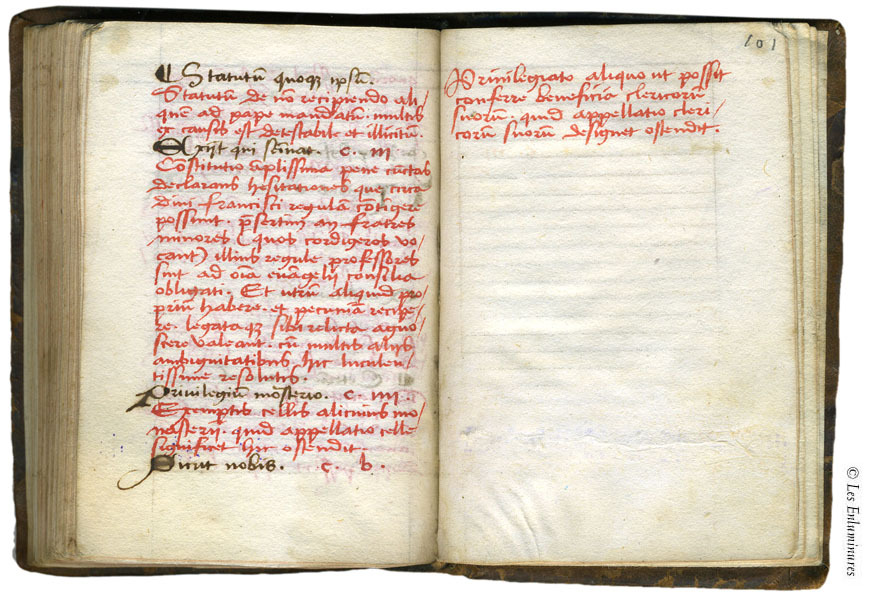 ¶ Statutū quoqȝ ipsū.
Statutū de nō recipiendo ali-
quē ad pape mandatū. multis
ex causis est detestabile et illicitū.
Exijt qui seīnat. c. iii
Cōstitutio āplissima pene cūctas
declarans hesitationes que circa
diui francisci regulā cōtigere
possunt. p̄sertim an fratres
minores (quos cordigeros vo-
cant) illius regule professores
sint ad oīa euāgelij consilia
obligati. Et utrum aliquid pro-
prium habere. et pecuniā recipe-
re. legataqȝ sibi relicta agno-
scere valeant. cū multis alijs
ambiguitatibus hic luculen-
tissime resolutis.
Priuilegiū mōsterio. c. iiii.
Exemptis cellis alicuius mo-
nasterij. quid appellatio celle
significet hic ostendit.
Sicut nobis. c. v.
101
Is priuilegiato aliquo ut possit
conferre beneficia clericorū
suorū. quid appellatio cleri-
corū suorū designet ostendit.
© Les Enluminures